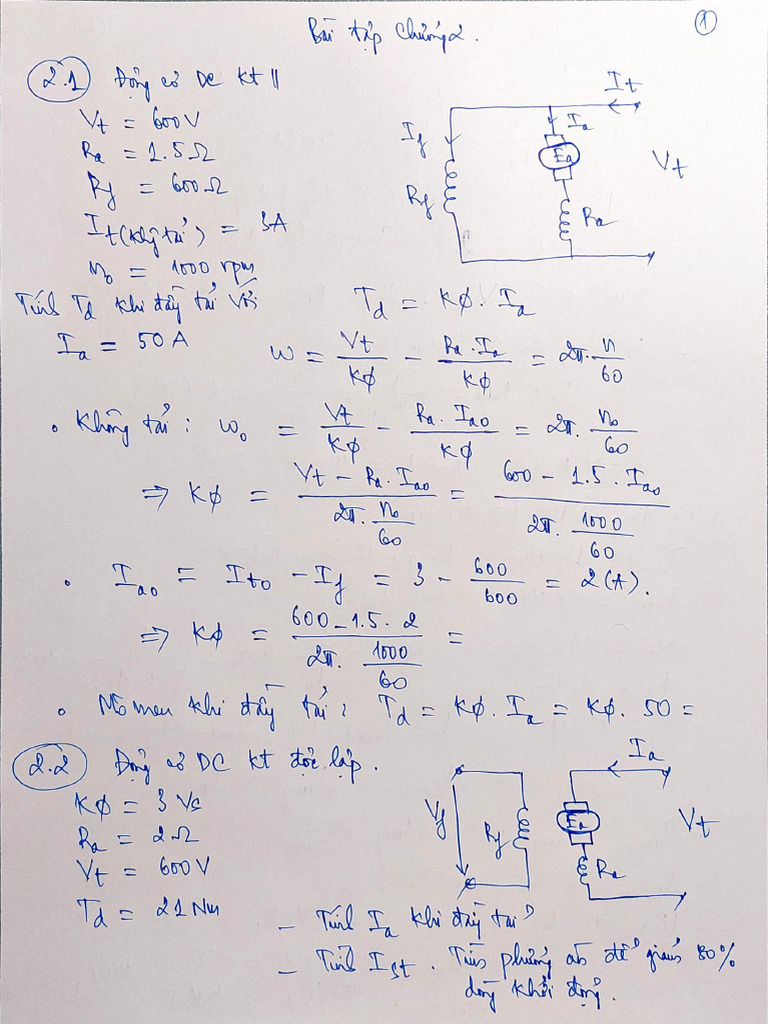 ①
Bài tập Chương 2.
2.1 Động cơ DC KT //
Vt = 600V
Ra = 1.5 Ω
Rf = 600 Ω
It(không tải) = 3A
n₀ = 1000 rpm
It
Ia
If
Ea
Vt
Rf
Ra
Tính Td khi đầy tải với
Ia = 50 A
Td = Kϕ . Ia
ω = Vt/Kϕ - Ra.Ia/Kϕ = 2π. n/60
• Không tải : ω₀ = Vt/Kϕ - Ra.Iao/Kϕ = 2π. n₀/60
⇒ Kϕ = (Vt - Ra.Iao)/(2π. n₀/60) = (600 - 1.5 . Iao)/(2π. 1000/60)
• Iao = Ito - If = 3 - 600/600 = 2 (A).
⇒ Kϕ = (600 - 1.5 . 2)/(2π. 1000/60) =
• Mômen khi đầy tải : Td = Kϕ . Ia = Kϕ . 50 =
2.2 Động cơ DC KT độc lập .
Kϕ = 3 Vs
Ra = 2 Ω
Vt = 600 V
Td = 21 Nm
Ia
Vf
Rf
Ea
Vt
Ra
- Tính Ia khi đầy tải
- Tính Ist . Tìm phương án để giảm 80%
dòng khởi động.